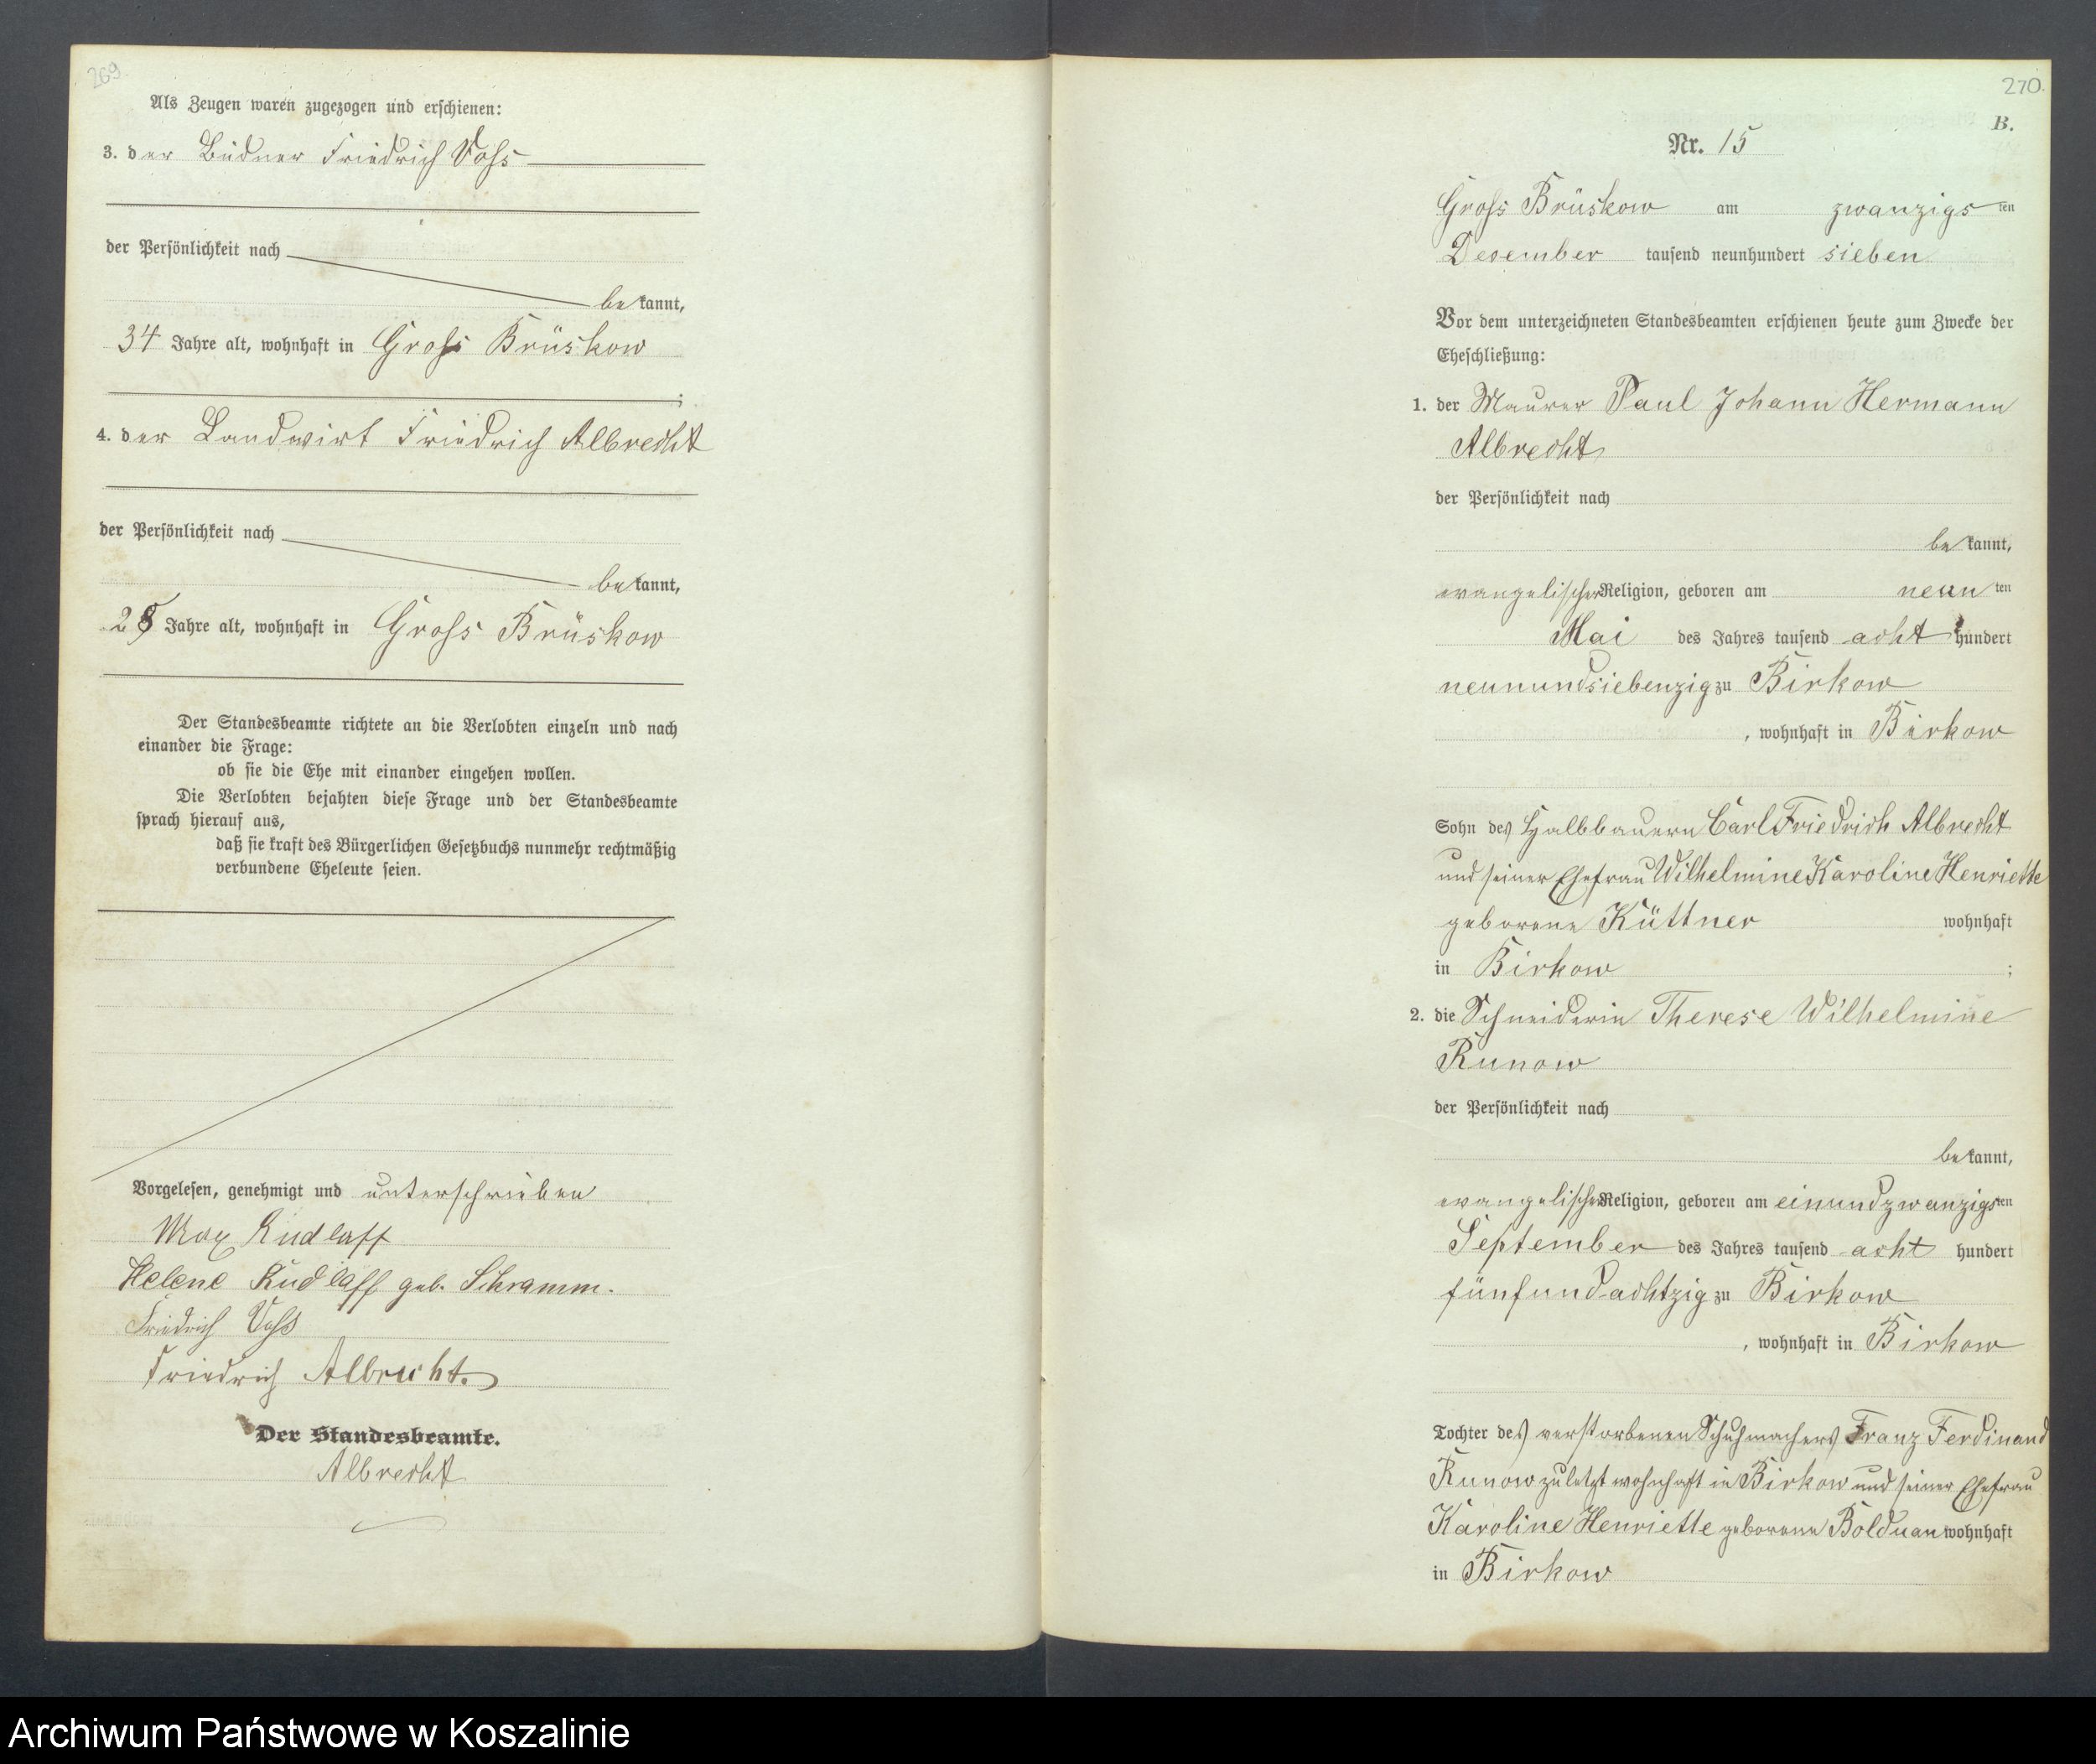 269.
Als Zeugen waren zugezogen und erschienen:
3. der Büdner Friedrich Voss
der Persönlichkeit nach
bekannt,
34 Jahre alt, wohnhaft in Gross Brüskow
;
4. der Landwirt Friedrich Albrecht
der Persönlichkeit nach
bekannt,
28 Jahre alt, wohnhaft in Gross Brüskow
Der Standesbeamte richtete an die Verlobten einzeln und nach
einander die Frage:
ob sie die Ehe mit einander eingehen wollen.
Die Verlobten bejahten diese Frage und der Standesbeamte
sprach hierauf aus,
daß sie kraft des Bürgerlichen Gesetzbuchs nunmehr rechtmäßig
verbundene Eheleute seien.
Vorgelesen, genehmigt und unterschrieben
Max Rudlaff
Helene Rudlaff geb. Schramm.
Friedrich Voss
Friedrich Albrecht.
Der Standesbeamte.
Albrecht
270.
B.
Nr. 15
Gross Brüskow am zwanzigsten
Dezember tausend neunhundert sieben
Vor dem unterzeichneten Standesbeamten erschienen heute zum Zwecke der
Eheschließung:
1. der Maurer Paul Johann Hermann
Albrecht
der Persönlichkeit nach
bekannt,
evangelischer Religion, geboren am neunten
Mai des Jahres tausend acht hundert
neunundsiebenzig zu Birkow
, wohnhaft in Birkow
Sohn des Halbbauern Carl Friedrich Albrecht
und seiner Ehefrau Wilhelmine Karoline Henriette
geborene Küttner wohnhaft
in Birkow ;
2. die Schneiderin Therese Wilhelmine
Runow
der Persönlichkeit nach
bekannt,
evangelischer Religion, geboren am einundzwanzigsten
September des Jahres tausend acht hundert
fünfundachtzig zu Birkow
, wohnhaft in Birkow
Tochter des verstorbenen Schuhmachers Franz Ferdinand
Runow zuletzt wohnhaft in Birkow und seiner Ehefrau
Karoline Henriette geborene Bolduan wohnhaft
in Birkow
Archiwum Państwowe w Koszalinie